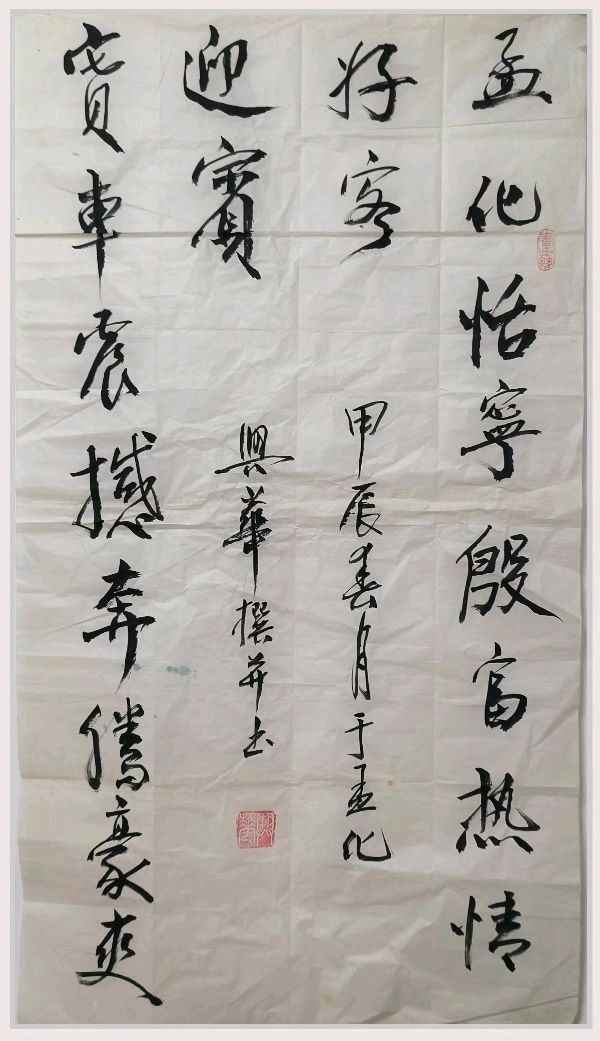 孟化恬寧殷富热情
好客
寳車震撼奔騰豪爽
迎賓
甲辰春月于孟化
興華撰并书